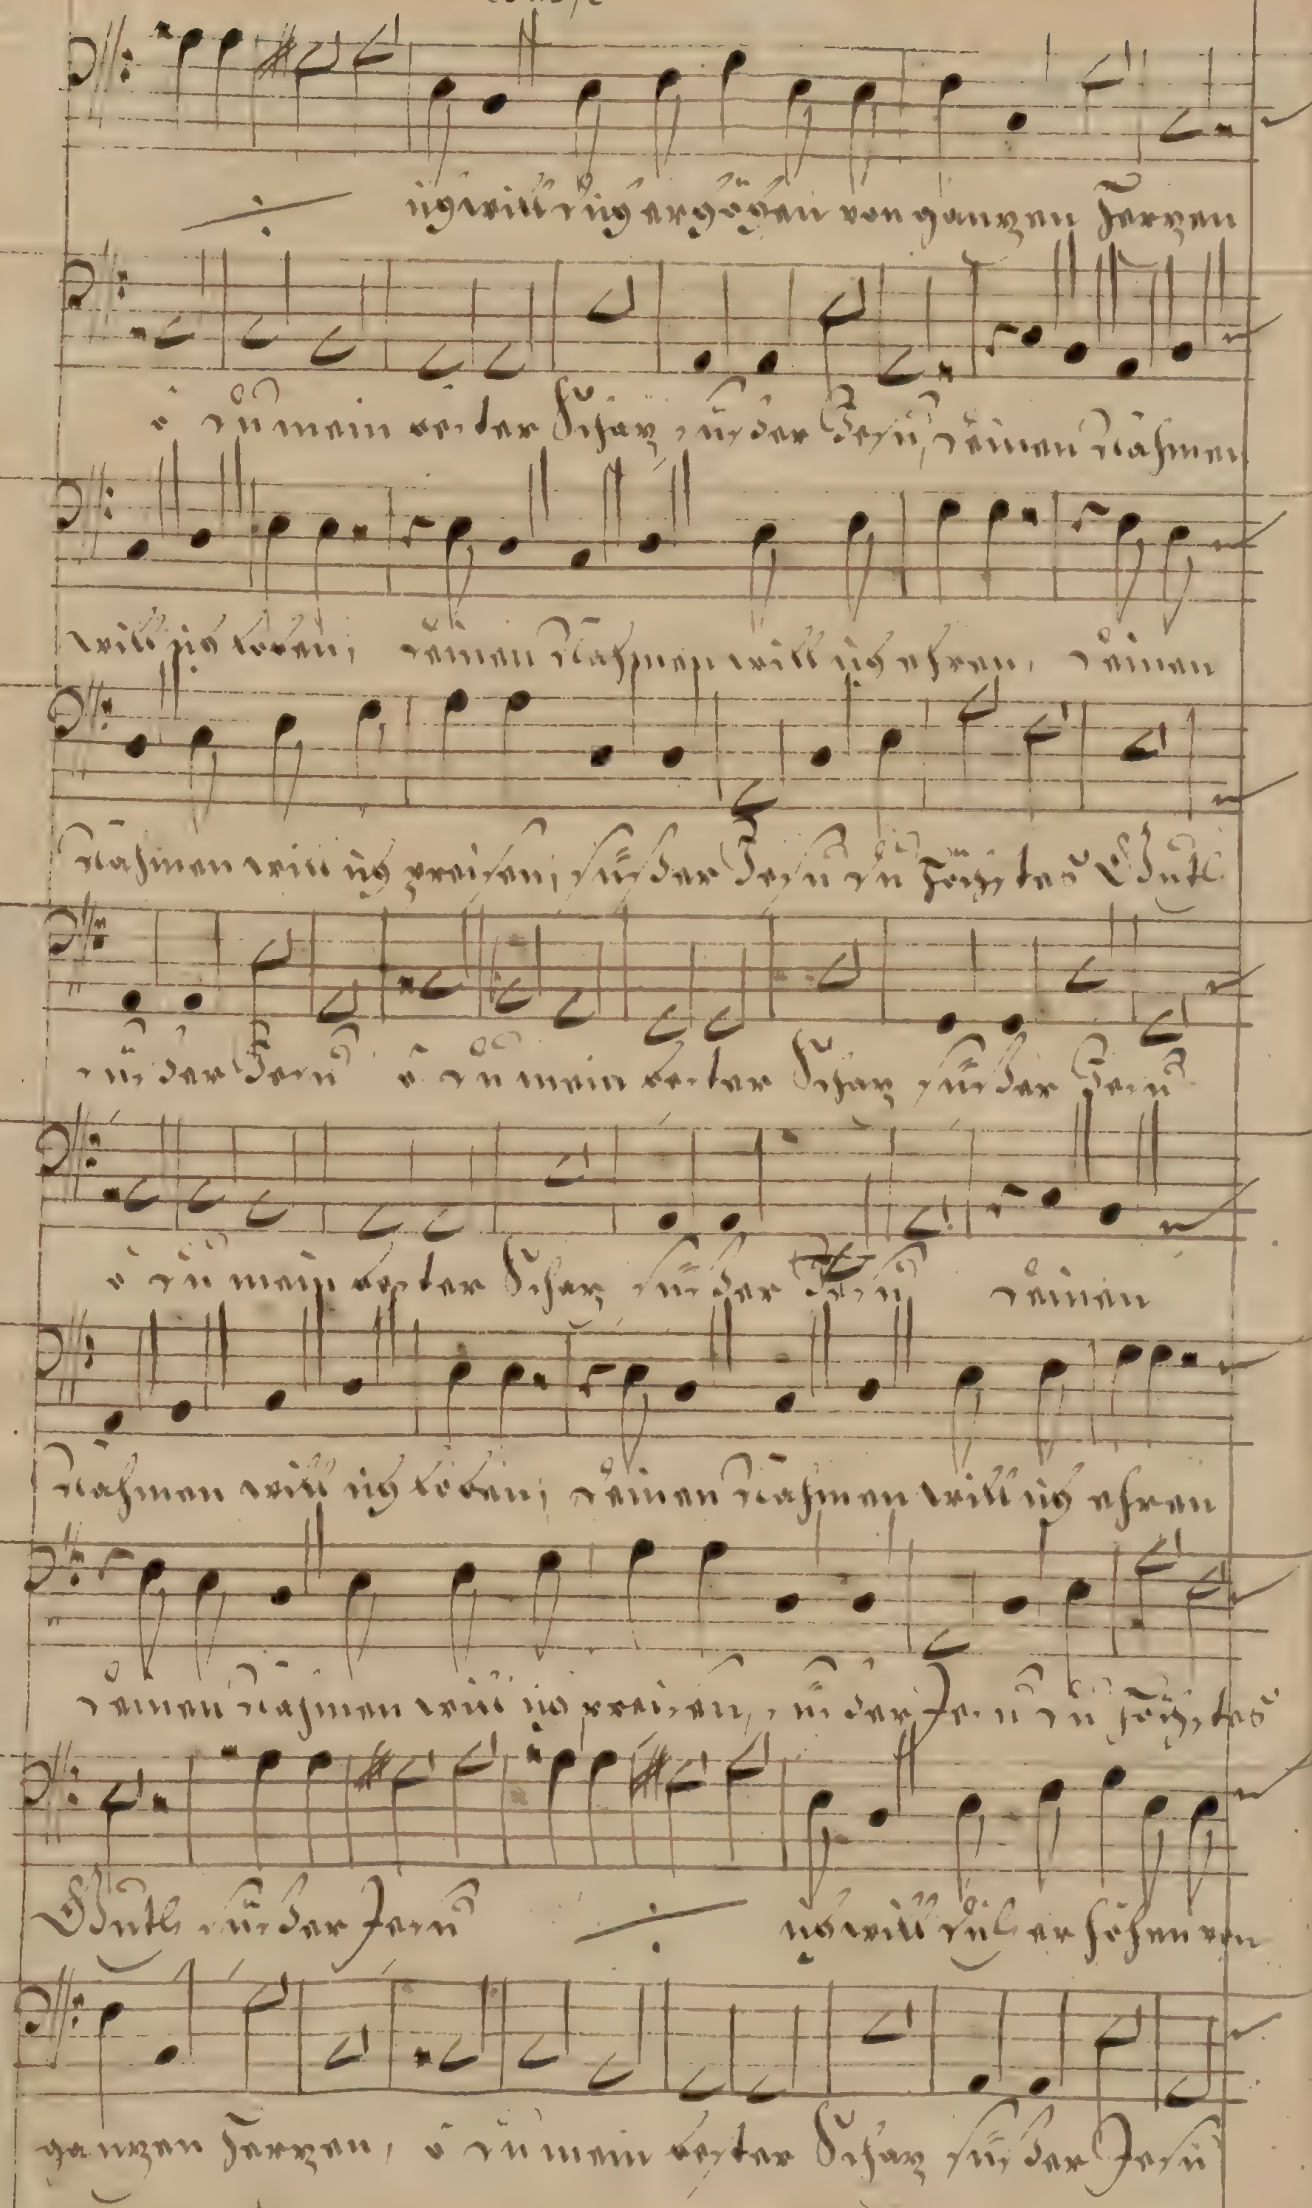 ich will dich ergötzen von gantzen Hertzen
ô du mein bester Schaz süsser Jesu, deinen Nahmen
will ich loben, deinen Nahmen will ich ehren, deinen
Nahmen will ich preisen, süsser Jesu du höchstes Gutt
süsser Jesu ô du mein bester Schaz süsser Jesu
ô du mein bester Schaz süsser Jesu deinen
Nahmen will ich loben, deinen Nahmen will ich ehren
deinen Nahmen will ich preisen, süsser Jesu du höchstes
Gutt süsser Jesu ich will dich erhöhen von
gantzen Hertzen, ô du mein bester Schaz süsser Jesu